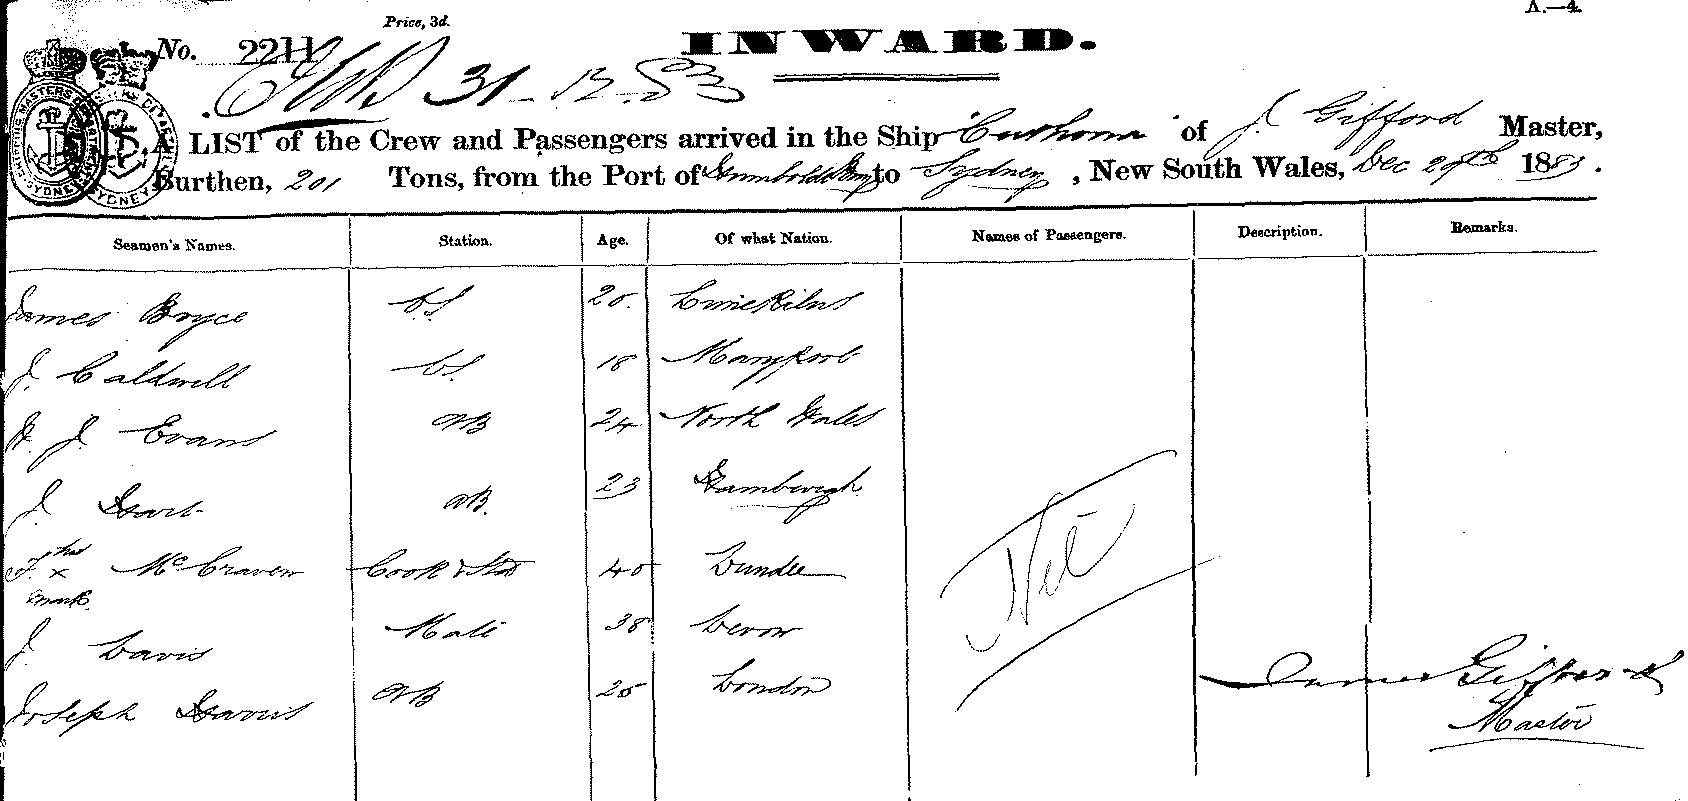 A.—4.
Price, 3d.
No. 2211
INWARD.
31-12-83
A LIST of the Crew and Passengers arrived in the Ship of J. Gifford Master,
Burthen, 201 Tons, from the Port of Humboldt Bay to Sydney, New South Wales, Dec 29th 1883.
Seamen's Names. Station. Age. Of what Nation. Names of Passengers. Description. Remarks.
James Bryce OS 20. Limekilns
J. Caldwell OS 18 Maryport
W. J. Evans AB 24 North Wales
J. Hart AB. 23 Hamburgh
J. his x mark McCraven Cook & Std 40 Dundee
J. Davis Mate 38 Devon
Joseph Harris AB 25 London
Nil
James Gifford
Master